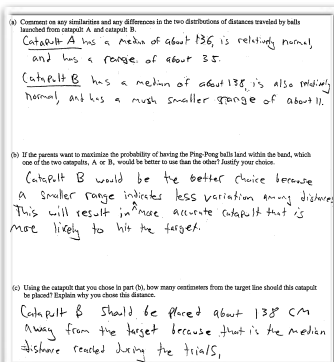 (a) Comment on any similarities and any differences in the two distributions of distances traveled by balls
launched from catapult A and catapult B.
Catapult A has a median of about 136, is relatively normal,
and has a range of about 35.
Catapult B has a median of about 138, is also relatively
normal, and has a much smaller range of about 11.
(b) If the parents want to maximize the probability of having the Ping-Pong balls land within the band, which
one of the two catapults, A or B, would be better to use than the other? Justify your choice.
Catapult B would be the better choice because
a smaller range indicates less variation among distances
This will result in a more accurate catapult that is
more likely to hit the target.
(c) Using the catapult that you chose in part (b), how many centimeters from the target line should this catapult
be placed? Explain why you chose this distance.
Catapult B should be placed about 138 CM
away from the target because that is the median
distance reached during the trials,